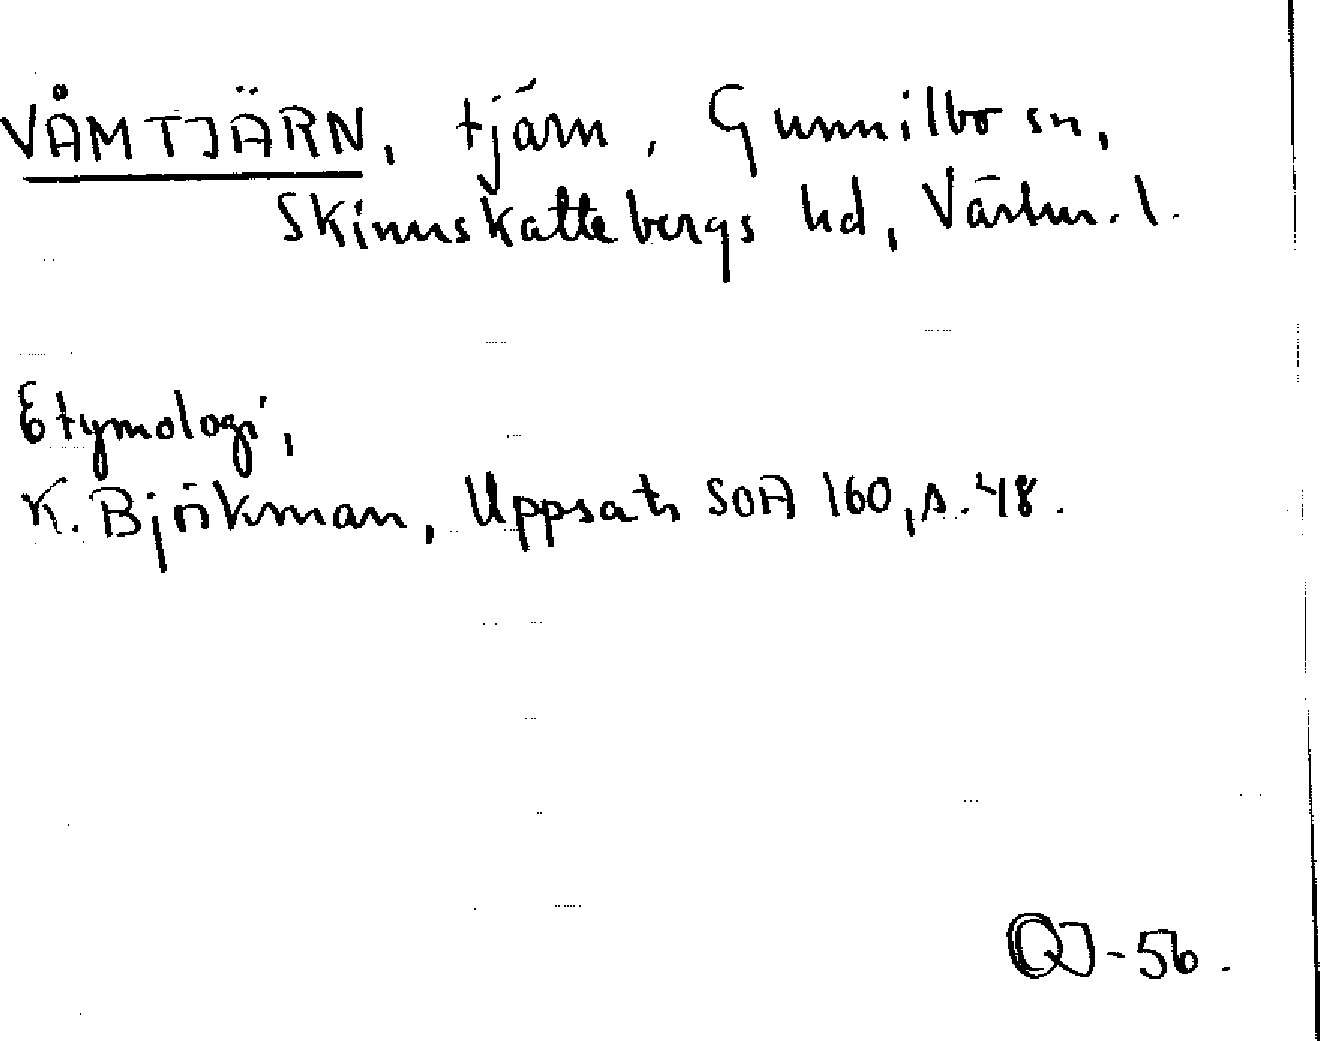 VÅMTJÄRN, tjärn, Gunnilbo sn,
Skinnskattebergs hd, Västm. l.
Etymologi,
K. Björkman, Uppsats SOA 160, s. 48.
QJ-56.